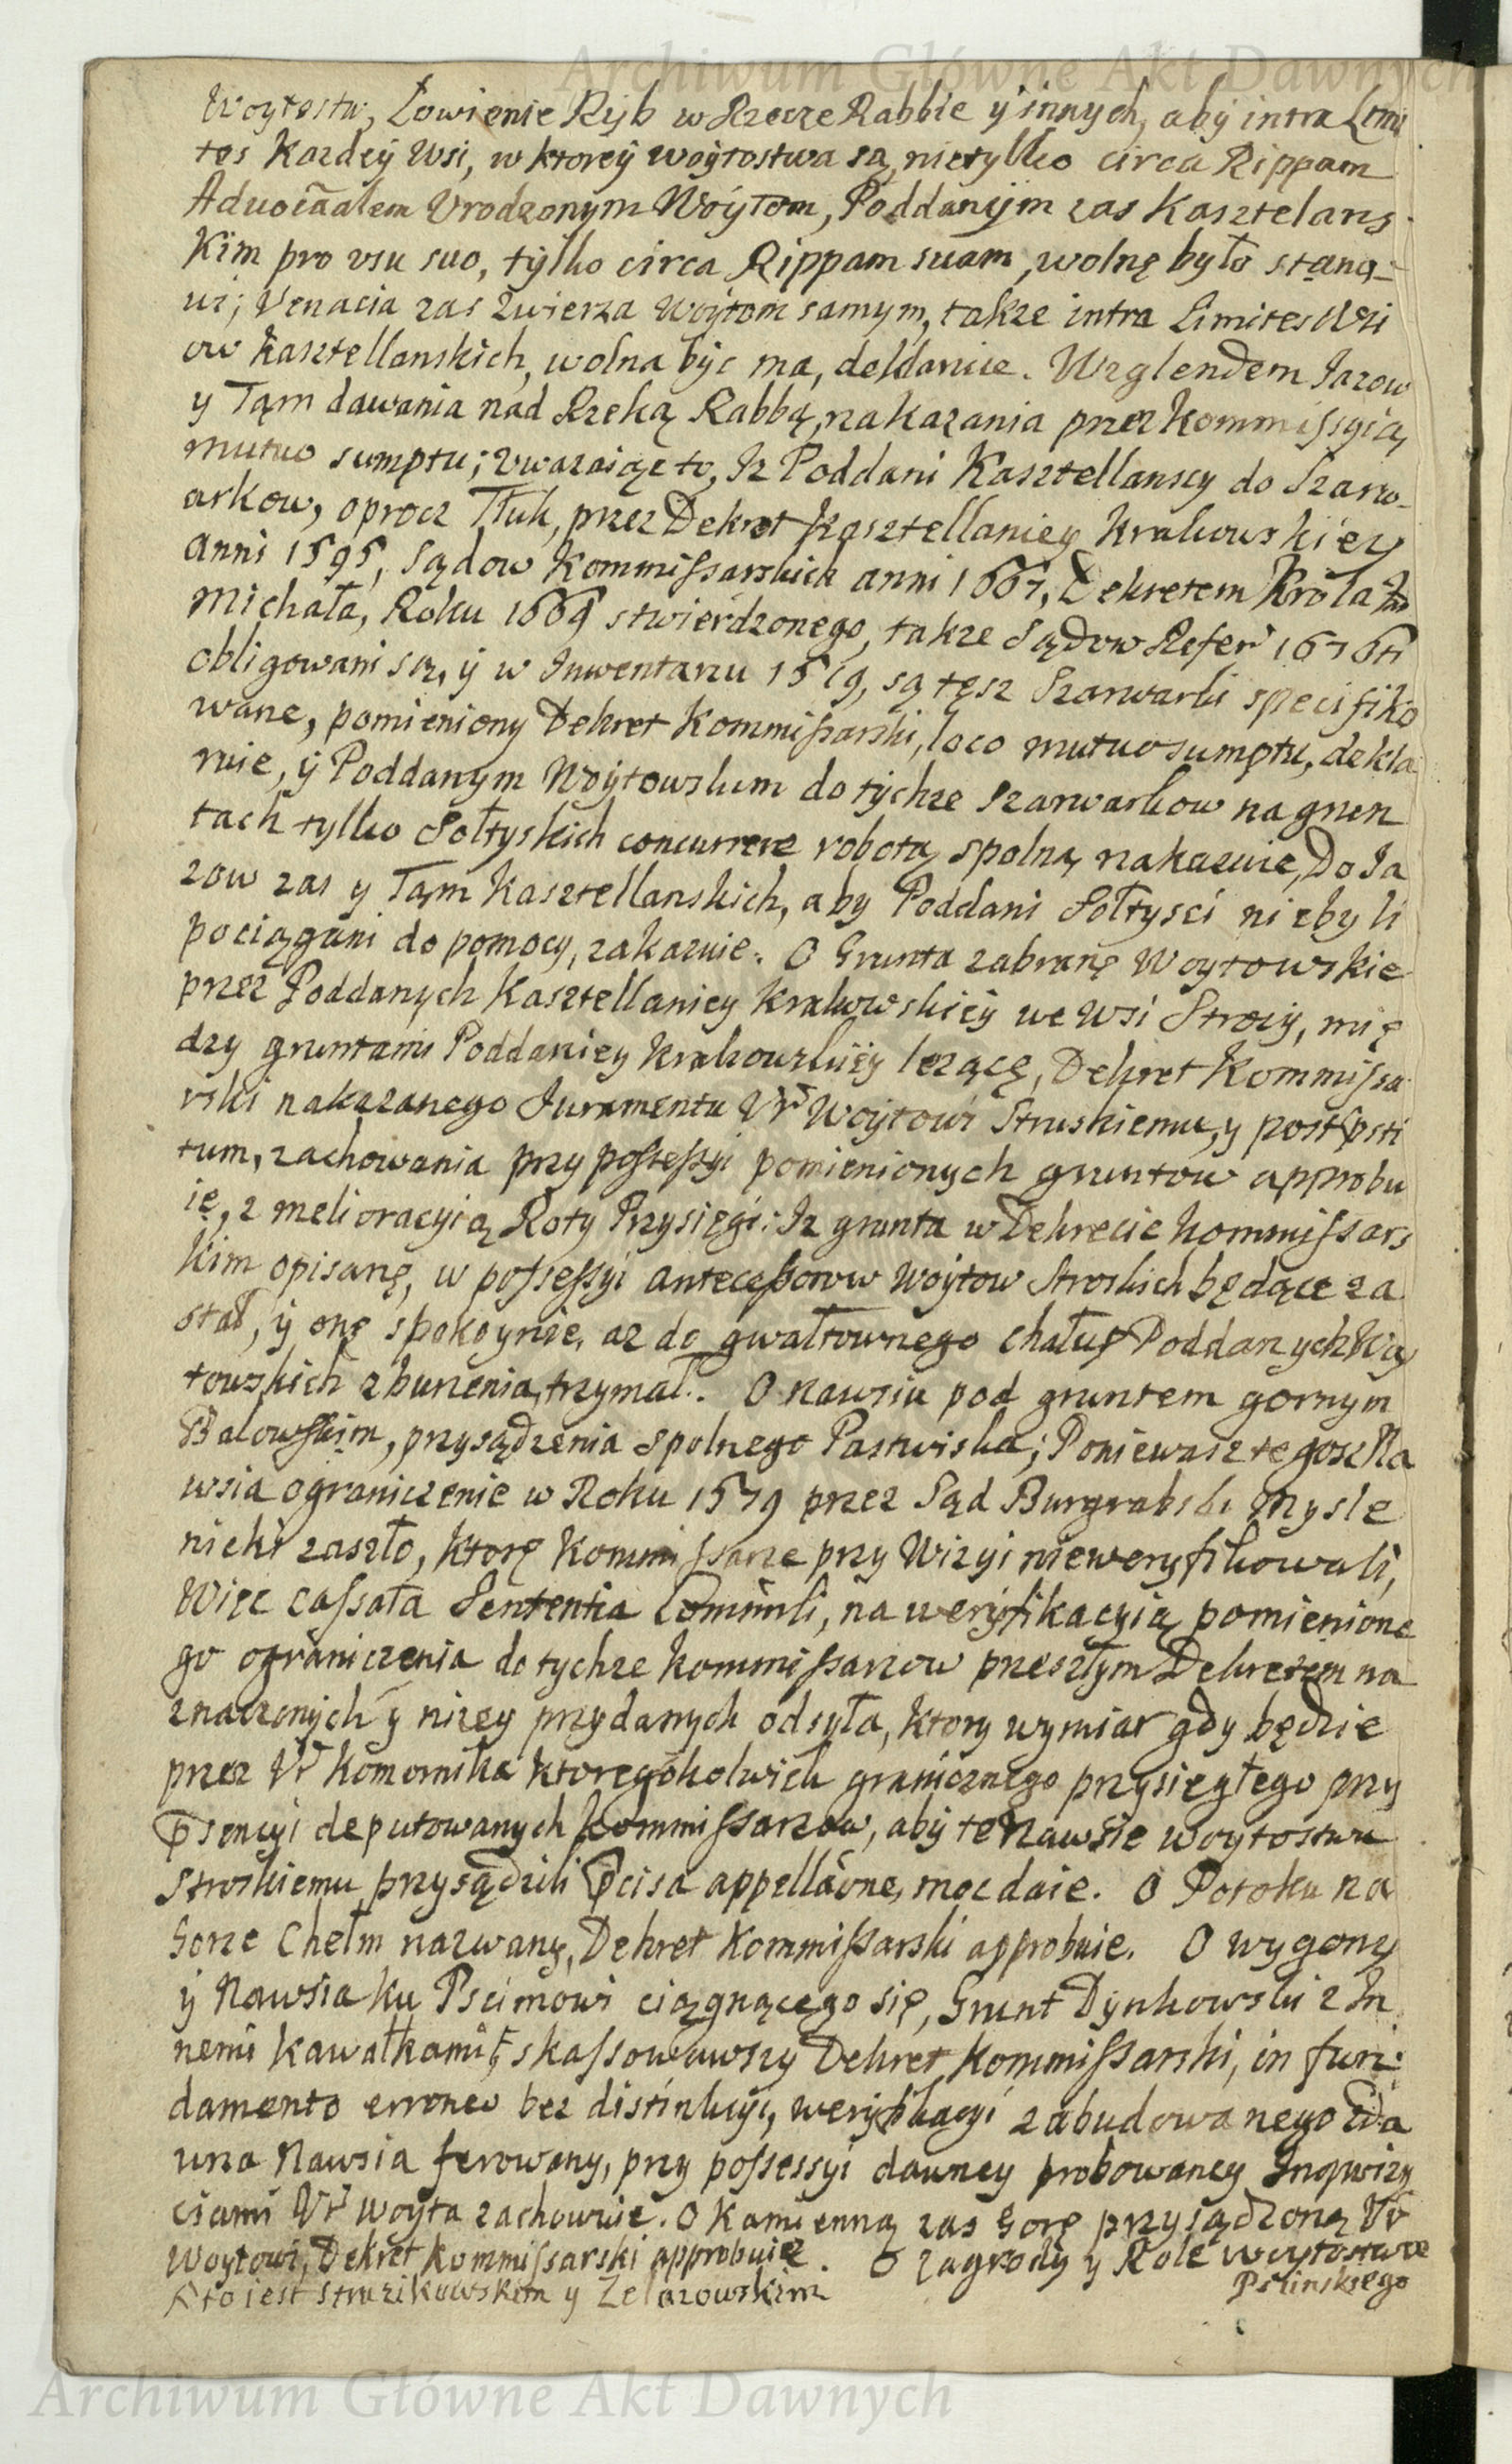 Archiwum Główne Akt Dawnych
Woytostw, Łowienie Ryb w Rzecze Rabbie y innych, aby intra Limi
tes Kazdey Wsi, w ktorey woytostwa są, nietylko circa Rippam
Aduocãalem Vrodzonym Woytom, Poddanym zas Kasztelans
kim pro vsu suo, tylko circa Rippam suam, wolnę było stano-
wi; Venacia zas Zwierza Woytom samym, takze intra Limites Wsi
ow Kasztellanskich, wolna byc ma, deklaruie. Wzglendem Jazow
y Tąm dawania nad Rzeką Rabbą, nakazania przez Kommissyią
mutuo sumptu; vwazaiąc to, Iz Poddani Kasztellanscy do Szarw-
arkow, oprocz Tłuk, przez Dekret Kasztellaniey Krakowskiey
Anni 1595, Sądow Kommissarskich anni 1667, Dekretem Krola
Michała, Roku 1669 stwierdzonego, takze Sądow Refer 1676ti
obligowani są, y w Inwentarzu są tęsz Szarwarki specifiko
wane, pomieniony Dekret Kommissarski, loco mutuo sumptu, dekla
ruie, y Poddanym Woytowskim do tychze Szarwarkow na grun
tach tylko Sołtyskich concurrere robotą spolną nakazuie, Do Ja
zow zas y Tąm Kasztellanskich, aby Poddani Sołtysci nie byli
pociągani do pomocy, zakazuie. O Grunta zabranę Woytowskie
przez Poddanych Kasztellaniey Krakowskiey we Wsi Strozy, mię
dzy gruntami Poddaniey Krakowskiey lezącę, Dekret Kommissa
rski nakazanego Juramentu Vr Woytowi Struskiemu, y post psti
tum, zachowania przy possessyi pomienionych gruntow approbu
ię, z melioracyią Roty Przysięgi: Iz grunta w Dekrecie Kommissars
kim opisanę, w possessyi antecessorow Woytow Stroskich będące za
stał, y onę spokoynie, az do gwałtownego chałup Poddanych Woy
towskich zburzenia, trzymał. O Nawsiu pod gruntem gornym
Balowskim, przysądzenia spolnego Pastwiska; Poniewasz tegosz Na
wsia ograniczenie w Roku 1579 przez Sąd Burgrabski Mysle
nicki zaszło, ktorę Kommissarze przy Wizyi nieweryfikowali,
Więc cassata Sententia Comimli, na weryfikacyią pomienione
go ograniczenia do tychze Kommissarzow przeszłym Dekretem na
znaczonych y nizey przydanych odsyła, ktory wymiar gdy będzie
przez Vr Komornika ktoregokolwiek granicznego przysięgłego przy
psencyi deputowanych Kommissarzow, aby te Nawsie Woytostwu
Stroskiemu przysądzili pcisa appellãone, moc daie. O Potoku na
Gorze Chełm nazwany, Dekret Kommissarski approbuie. O wygony
y Nawsia ku Pscimowi ciągnącego się, Grunt Dynkowski z In
nemi Kawałkami, skassowawszy Dekret Kommissarski, in fun
damento erroneo bez distinkcyi, weryfikacyi zabudowanego zda
wna Nawsia ferowany, przy possessyi dawney probowaney Inqwizy
ciami Vr Woyta zachowuie. O Kamienną zas Gorę przysądzoną Vr
Woytowi, Dekret Kommissarski approbuie. O zagrody y Role woytostwa
Pscinskiego
to iest Struzikowskim y Zelazowskim
Archiwum Główne Akt Dawnych